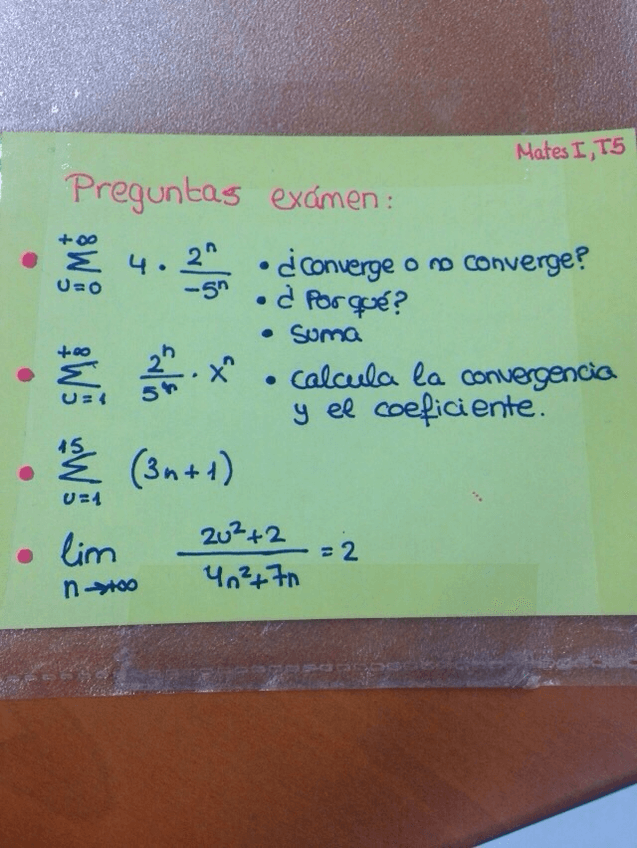 Mates I, T5
Preguntas exámen:
+∞ Σ U=0 4 · 2ⁿ/-5ⁿ • ¿Converge o no converge?
• ¿Por qué?
• Suma
+∞ Σ U=1 2ⁿ/5ⁿ · xⁿ • Calcula la convergencia
y el coeficiente.
15 Σ U=1 (3n+1)
lim n→+∞ 2u²+2/4n²+7n = 2